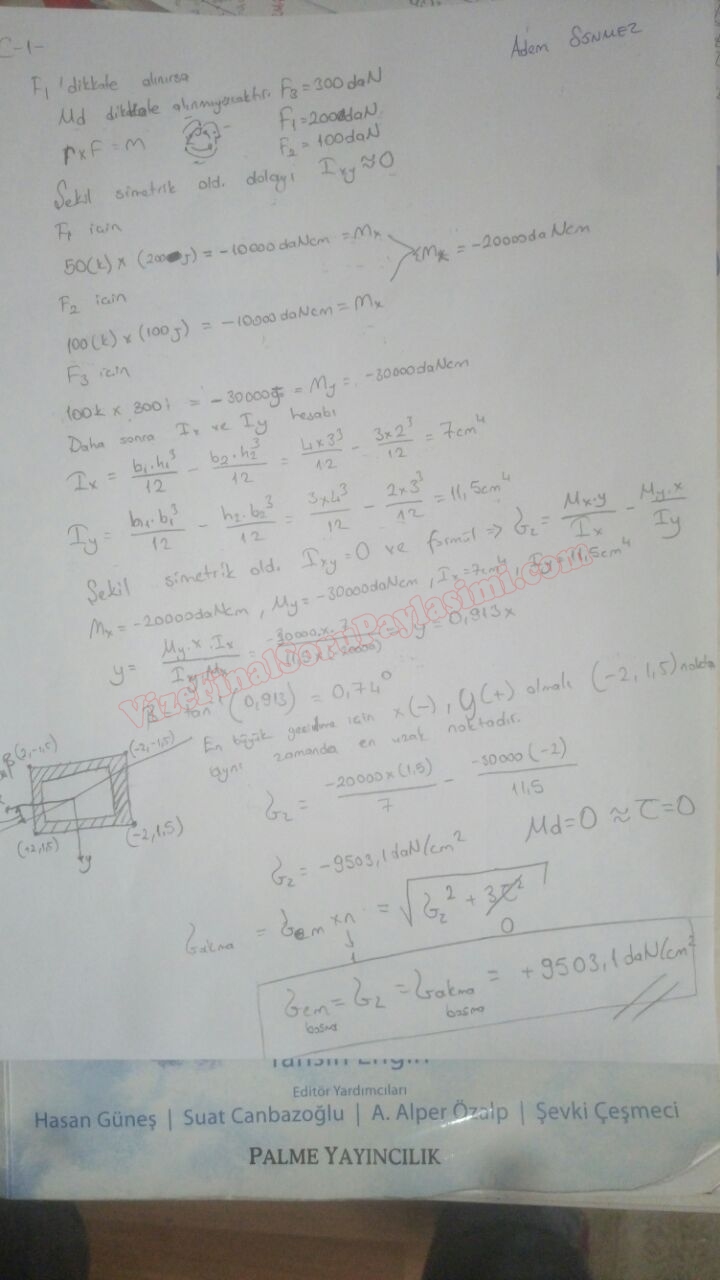 C-1-
Adem SÖNMEZ
F₁'dikkate alınırsa
Md dikkate alınmıyacaktır. F₃=300daN
F₁=200daN
r x F = M
F₂=100daN
Şekil simetrik old. dolayı Ixy≈0
F₁ için
50(k) x (200j) = -10000daNcm = Mx
ΣMx = -20000daNcm
F₂ için
100(k) x (100j) = -10000daNcm = Mx
F₃ için
100k x 300i = -30000j = My = -30000daNcm
Daha sonra Ix ve Iy hesabı
Ix = b₁.h₁³/12 - b₂.h₂³/12 = 4x3³/12 - 3x2³/12 = 7cm⁴
Iy = h₁.b₁³/12 - h₂.b₂³/12 = 3x4³/12 - 2x3³/12 = 11,5cm⁴
Şekil simetrik old. Ixy=0 ve formül => σz = Mx.y/Ix - My.x/Iy
Mx=-20000daNcm, My=-30000daNcm, Ix=7cm⁴, Iy=11,5cm⁴
VizeFinalSoruPaylasimi.com
y = My.x.Ix/Iy.Mx = y=0,913x
β = tan⁻¹(0,913) = 0,74⁰
En büyük gerilme için x(-), y(+) olmalı (-2, 1,5) nokta
aynı zamanda en uzak noktadır.
B(2,-1,5)
(-2,-1,5)
(-2,1,5)
y
σz = -20000x(1,5)/7 - -30000(-2)/11,5
Md=0 ≈ τ=0
σz = -9503,1daN/cm²
σakma = σem x n = √σz² + 3τ²
1
0
σem = σz = σakma = +9503,1daN/cm²
basma basma
Editör Yardımcıları
Hasan Güneş | Suat Canbazoğlu | A. Alper Özalp | Şevki Çeşmeci
PALME YAYINCILIK